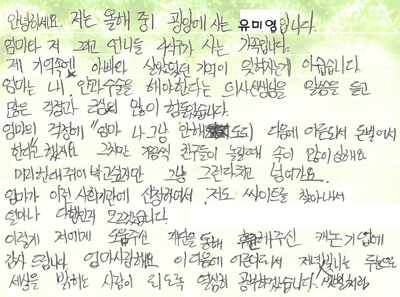 안녕하세요. 저는 올해 중1 광양에 사는 유미영입니다.
엄마와 저 그리고 언니들 네식구가 사는 가족입니다.
제 기억속엔 아빠와 살았었던 기억이 잊혀지는게 아쉽습니다.
엄마는 내, 안과수술을 해야한다는 의사선생님 말씀을 듣고
많은 걱정과 고민의 많이 힘들었습니다.
엄마의 걱정에 "엄마 나 그냥 안해도되 다음에 어른되서 돈벌어서
한다"고 했지요 그치만 가끔씩 친구들이 놀릴때 속이 많이 상해요
때려주고 싶지만 그냥 그런다하고 넘어가요.
엄마가 이런 사회기관에 신청하여서 저도 싸이트를 찾아내서
얼마나 다행인지 모르겠습니다.
이렇게 저에게 도움주신 해주신 캐논기업에
감사드립니다. 엄마사랑해요 이다음에 어른되어서 저 빛나는 두눈으로
세상을 밝히는 사람이 되도록 열심히 공부하겠습니다! 샛별처럼